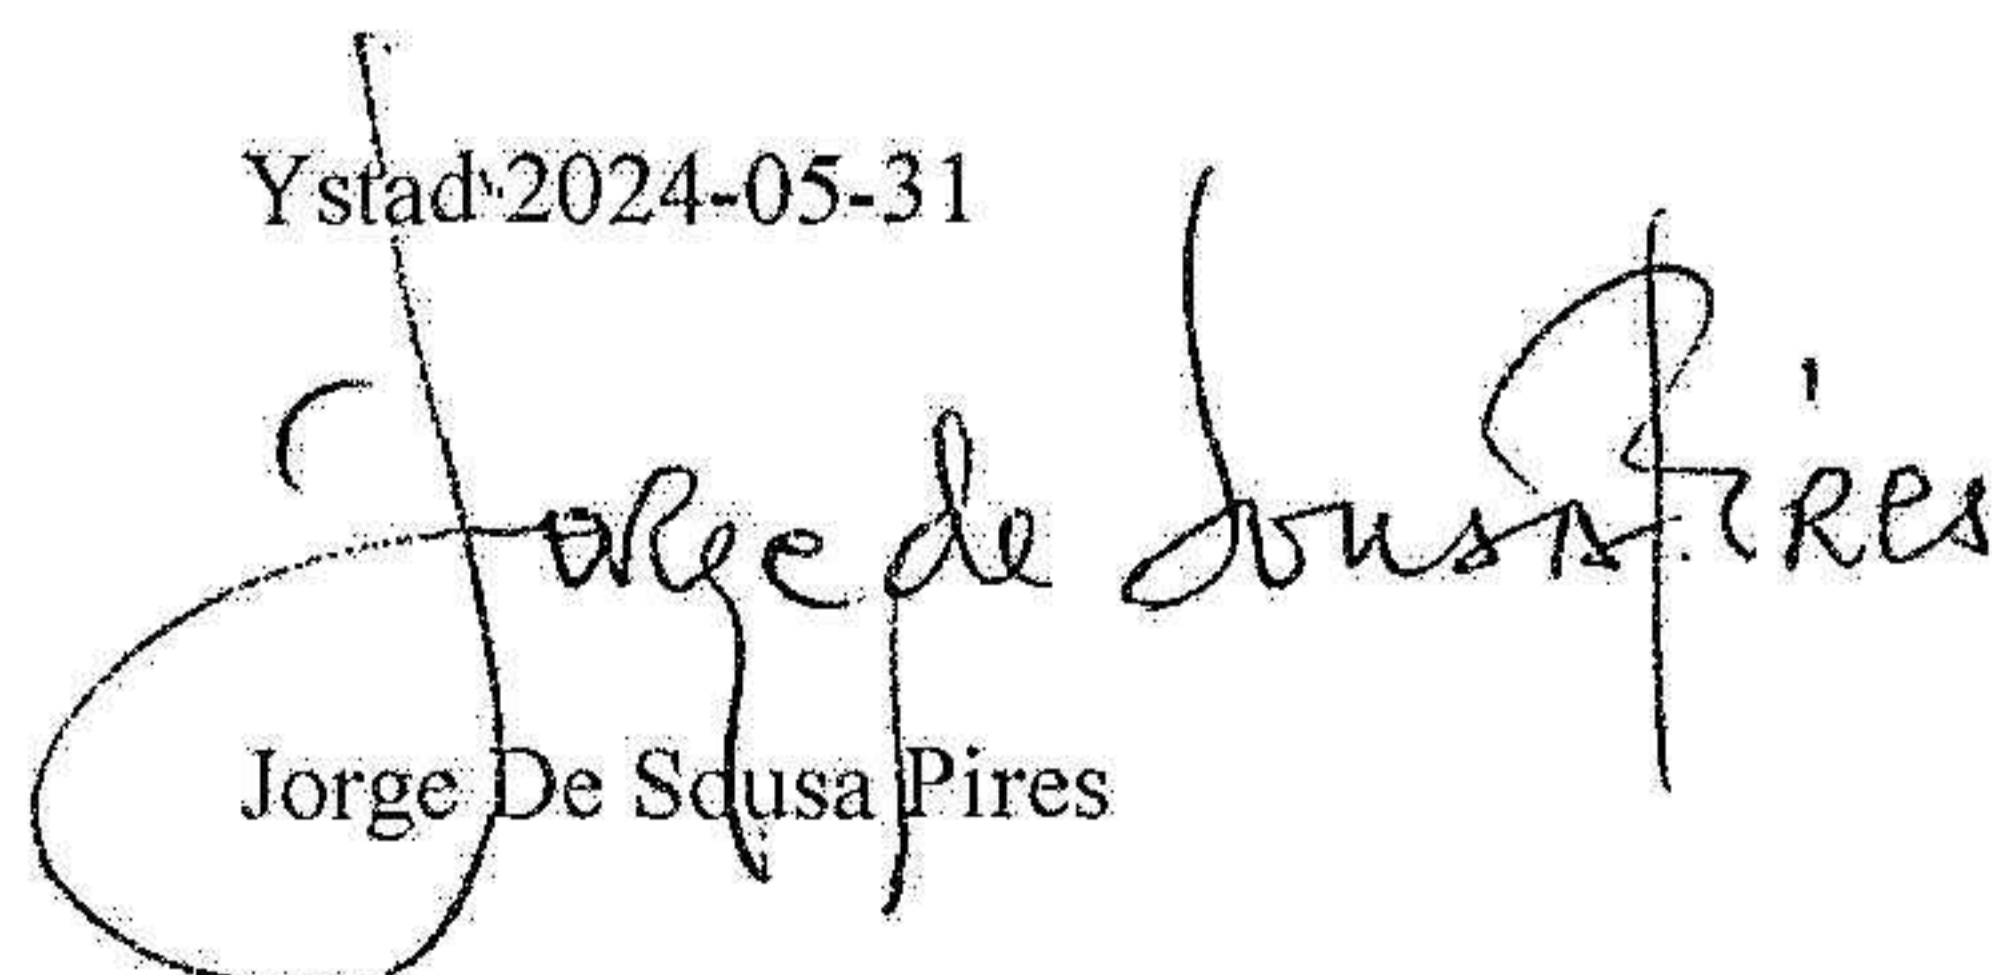 Ystad 2024-05-31
Jorge de Sousa Pires
Jorge De Sousa Pires